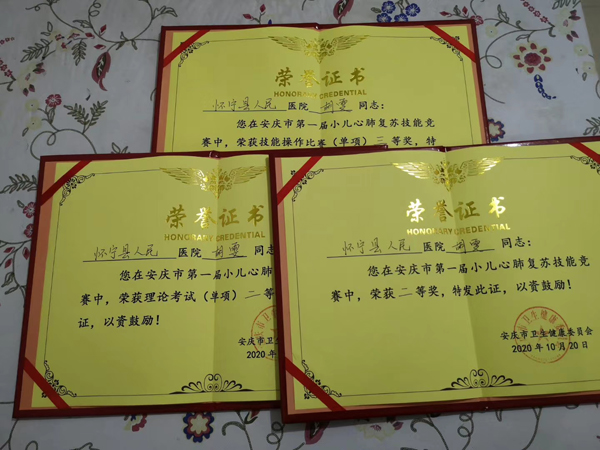 荣誉证书
HONORARY CREDENTIAL
怀宁县人民 医院 胡雯 同志：
您在安庆市第一届小儿心肺复苏技能竞
赛中，荣获技能操作比赛（单项）二等奖，特
荣誉证书
HONORARY CREDENTIAL
怀宁县人民 医院 胡雯 同志
您在安庆市第一届小儿心肺
赛中，荣获理论考试（单项）二等
证，以资鼓励！
安庆市卫生
2020年
荣誉证书
HONORARY CREDENTIAL
怀宁县人民 医院 胡雯 同志：
您在安庆市第一届小儿心肺复苏技能竞
赛中，荣获二等奖，特发此证，以资鼓励！
安庆市卫生健康委员会
2020年10月20日